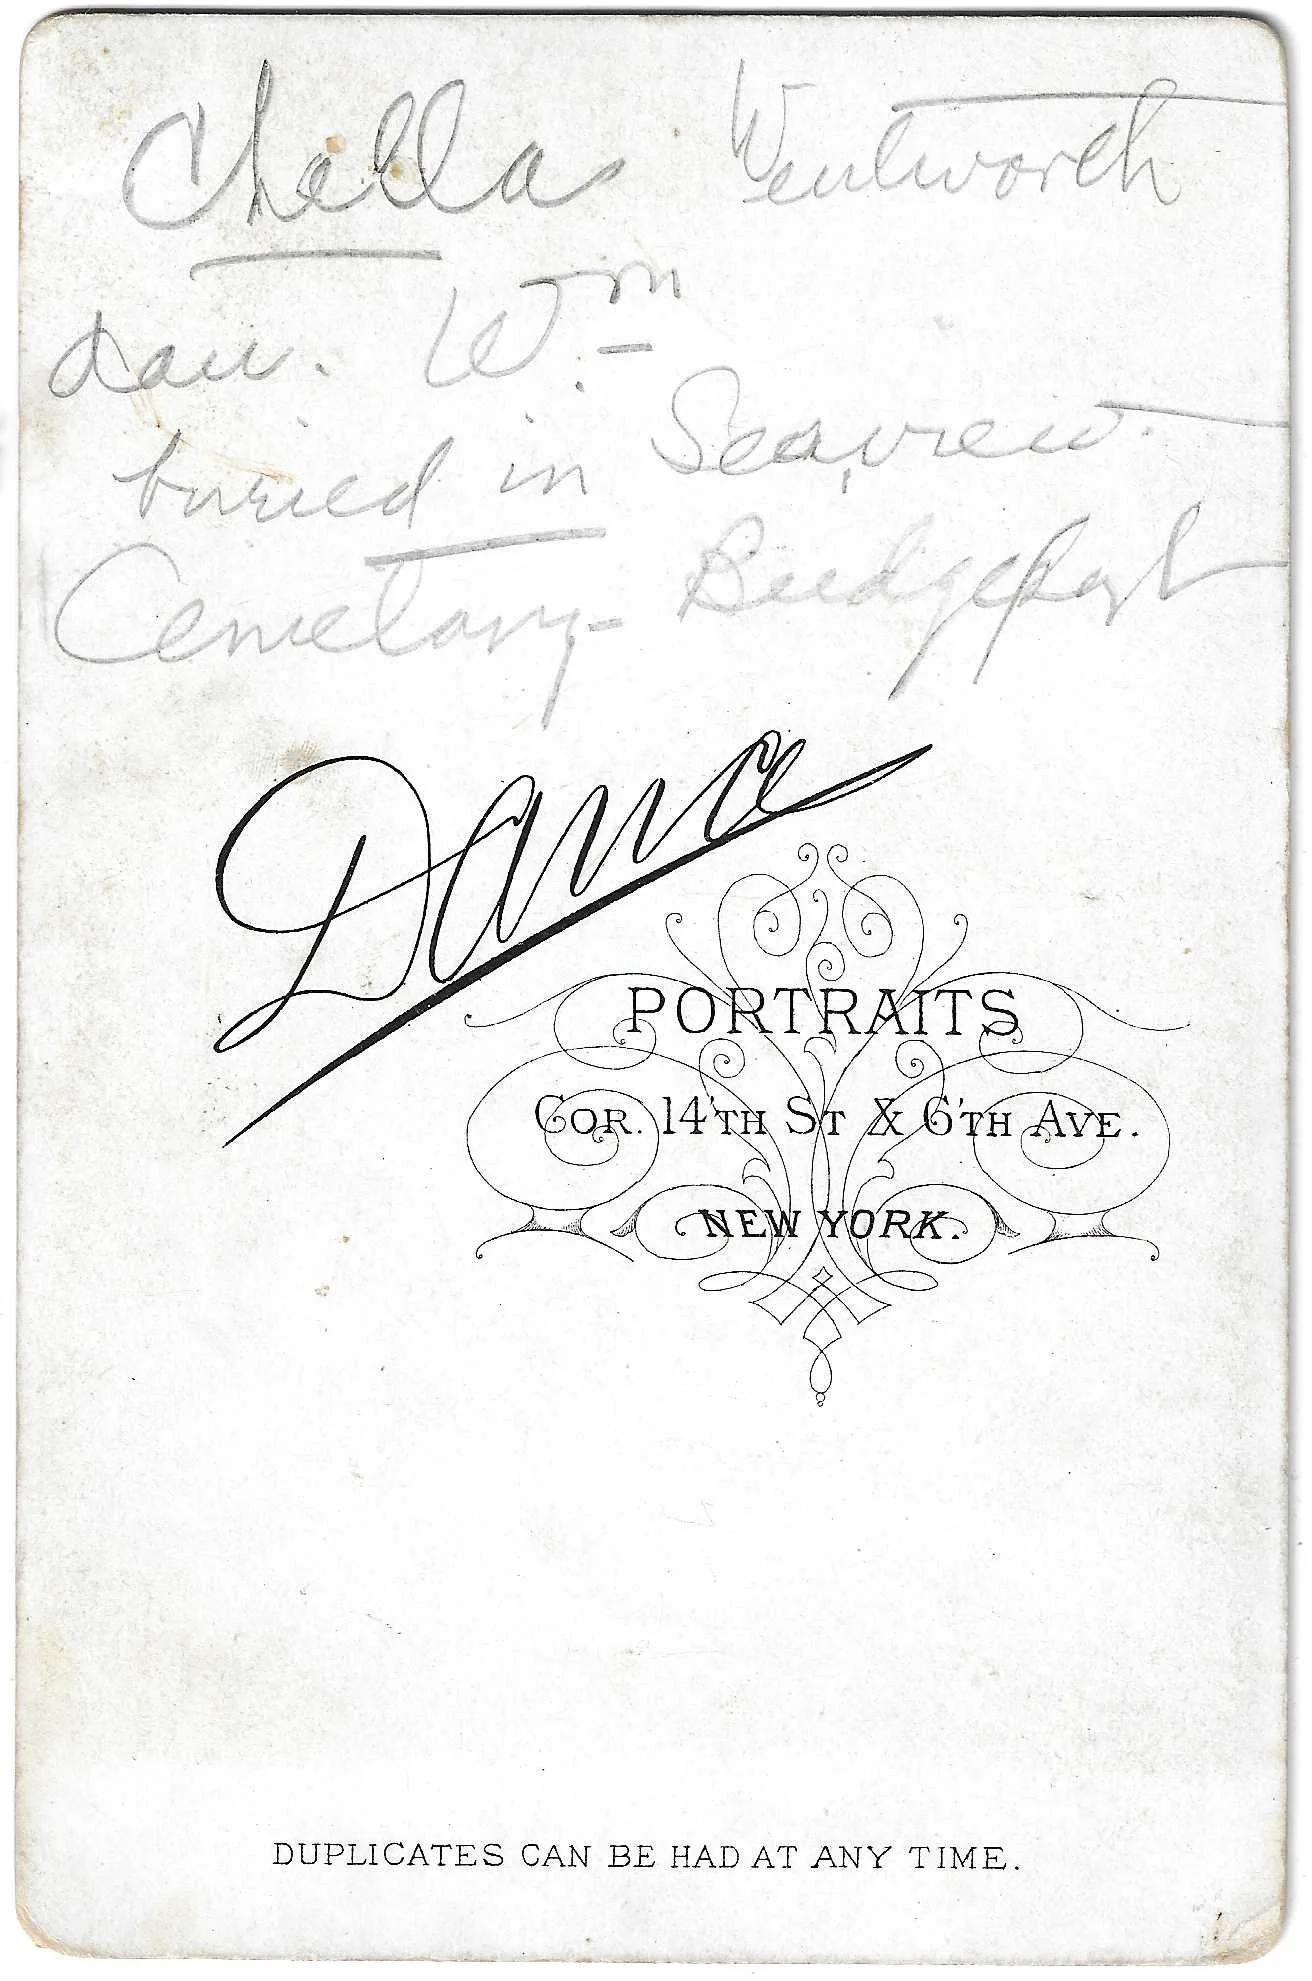 Chella Wentworth
dau. Wm
buried in Seaview
Cemetary - Bridgeport
Dana
PORTRAITS
COR. 14'TH ST & 6'TH AVE.
NEW YORK.
DUPLICATES CAN BE HAD AT ANY TIME.